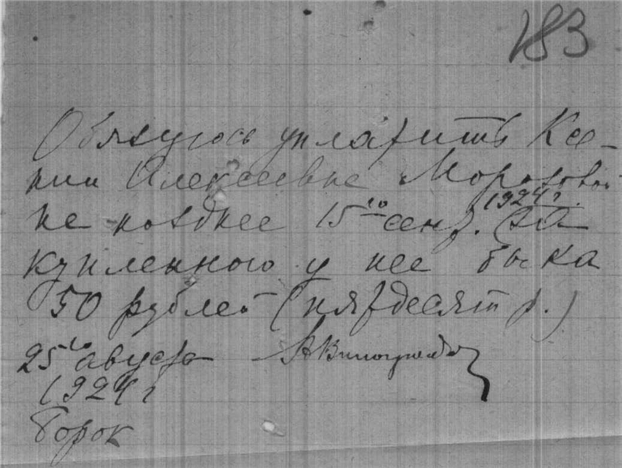 183
Обязуюсь уплатить Ксе-
нии Алексеевне Морозовой
не позднее 15го сент. 1924 г. за
купленного у нее быка
50 рублей (пятдесят р.)
25го августа АВиноградов
1924 г
Борок